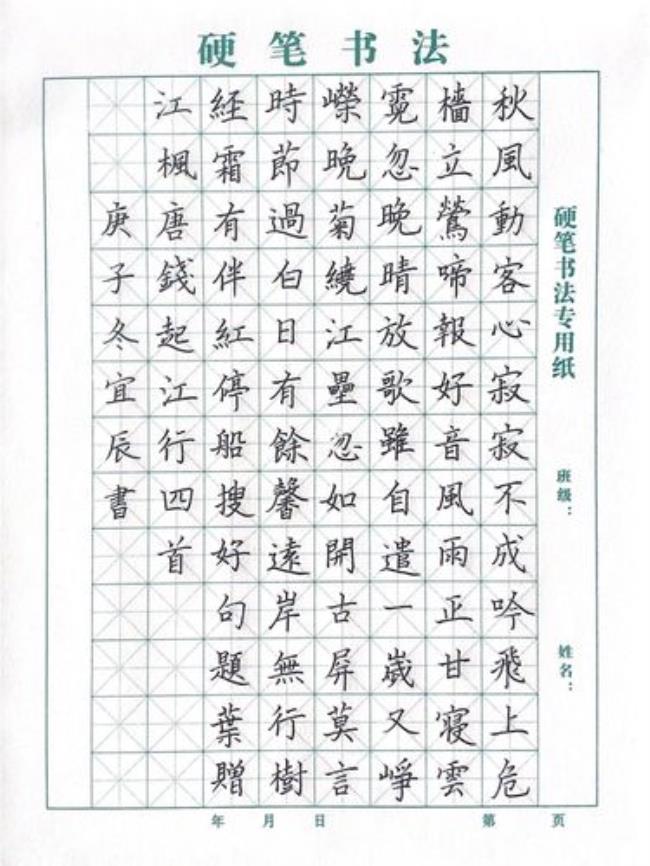 硬笔书法
硬笔书法专用纸
班级：
姓名：
秋風動客心寂寂不成吟飛上危
檣立鶯啼報好音風雨正甘寢雲
霓忽晚晴放歌雖自遣一歲又崢
嶸晚菊繞江壘忽如開古屏莫言
時節過白日有餘馨遠岸無行樹
経霜有伴紅停船搜好句題葉贈
江楓唐錢起江行四首
庚子冬宜辰書
年 月 日 第 页